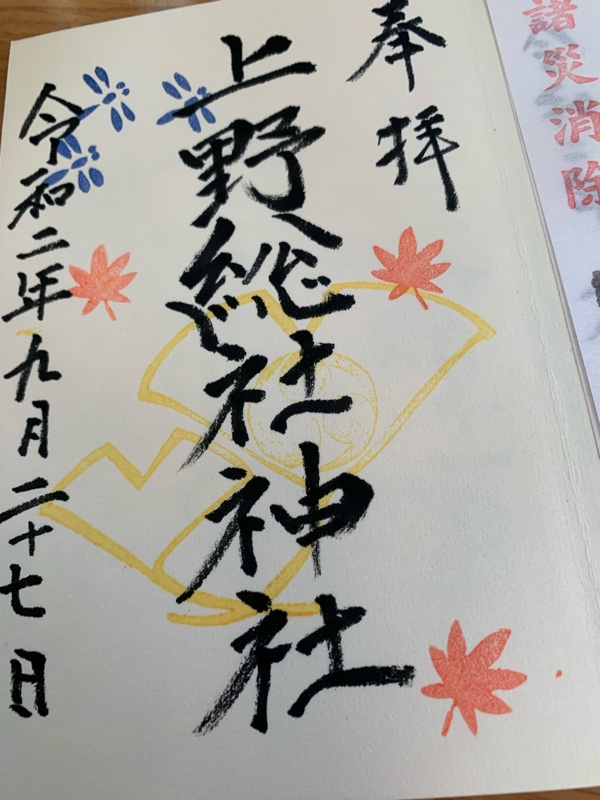 諸災消除
奉拝
上野総社神社
令和二年九月二十七日